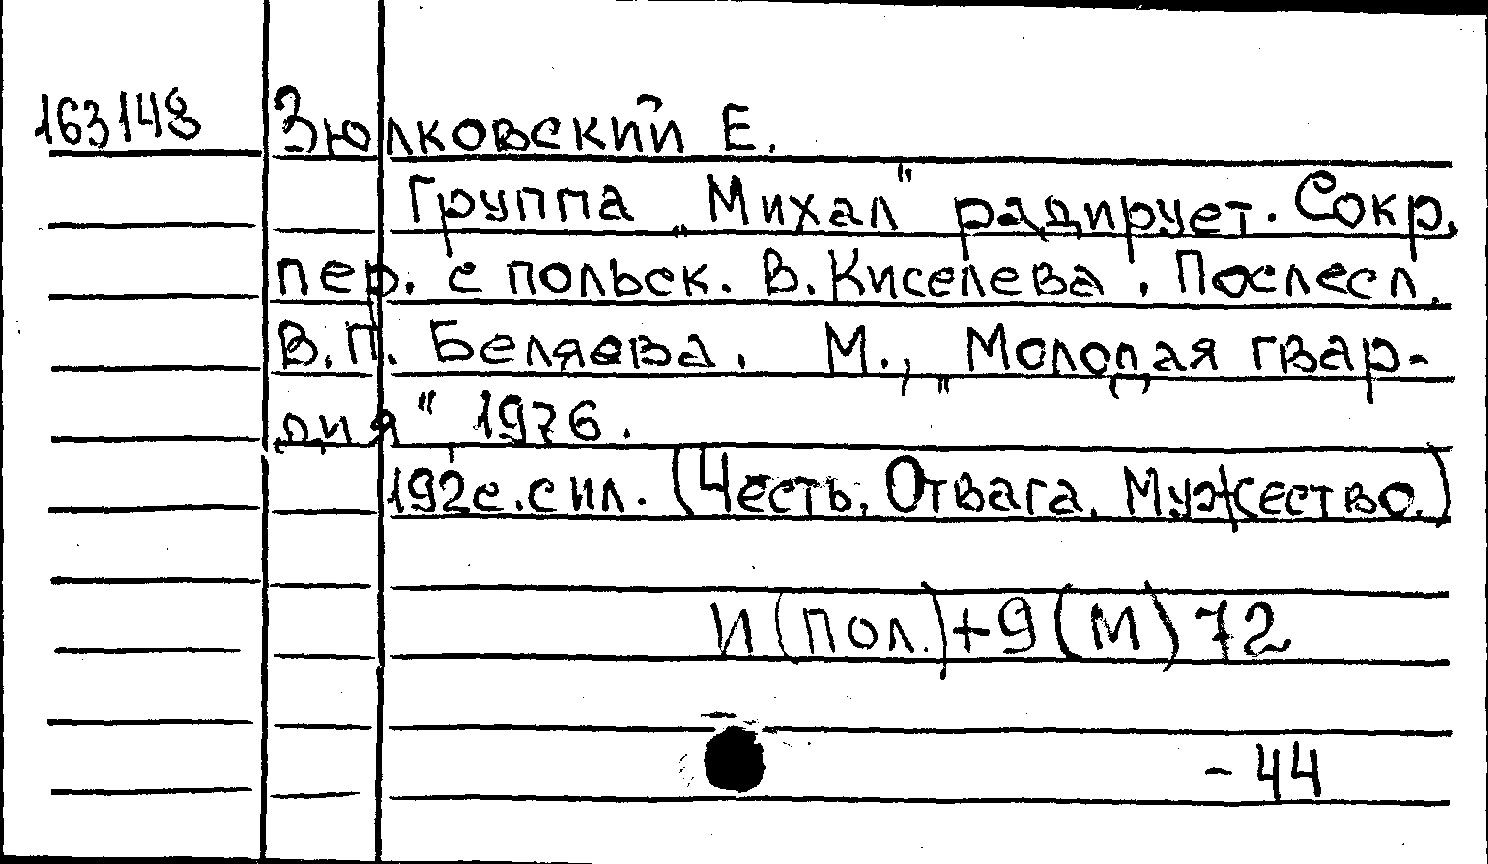 163148 Зюлковский Е.
Группа „Михал" радирует. Сокр.
пер. с польск. В. Киселева. Послесл.
В.П. Беляева. М., „Молодая гвар-
дия" 1976.
192с. с ил. (Честь. Отвага. Мужество.)
И(Пол.)+9(М)72
- 44